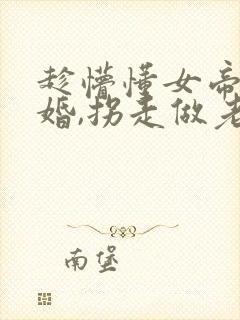 趁懵懂女帝
婚,拐走做老
南堡